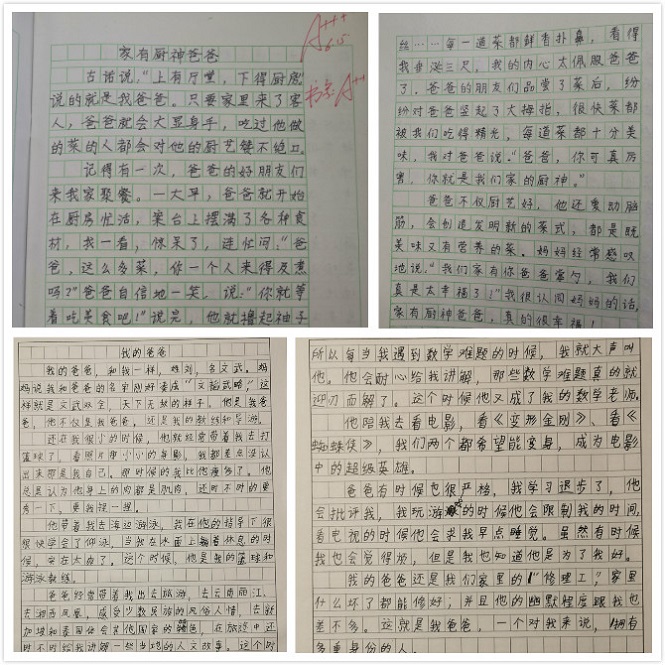 家有厨神爸爸
A+++
古话说，“上有厅堂，下得厨房”
说的就是我爸爸。只要家里来了客
人，爸爸就会大显身手，吃过他做
的菜的人都会对他的厨艺赞不绝口。
记得有一次，爸爸的好朋友们
来我家聚餐。一大早，爸爸就开始
在厨房忙活，案台上摆满了各种食
材，我一看，惊呆了，连忙问：“爸
爸，这么多菜，你一个人来得及煮
吗？”爸爸自信地一笑，说：“你就等
着吃美食吧！”说完，他就撸起袖子
丝……每一道菜都鲜香扑鼻，看得
我垂涎三尺，我的内心太佩服爸爸
了，爸爸的朋友们品尝了菜后，纷
纷对爸爸竖起了大拇指，很快菜都
被我们吃得精光，每道菜都十分美
味，我对爸爸说：“爸爸，你可真厉
害，你就是我们家的厨神。”
爸爸不仅厨艺好，他还爱动脑
筋，会创造发明新的菜式，都是既
美味又有营养的菜。妈妈经常感叹
地说：“我们家有你爸爸掌勺，我们
真是太幸福了！”我很认同妈妈的话，
家有厨神爸爸，真的很幸福！
我的爸爸
我的爸爸，和我一样，姓刘，名文武。妈
妈说我和爸爸的名字刚好凑成“文韬武略”，这
样就是文武双全，天下无敌的样子。他是我爸
爸，他不仅是我爸爸，还是我的教练和导游。
还在我很小的时候，他就经常带着我去打
篮球了。看照片里小小的身影，我都差点没认
出来那是我自己。那时候的我比他瘦多了。他
总是认为他身上的肉都是肌肉，还时不时的要
秀一下，要我捏一捏。
他带着我去海边游泳，我在他的指导下很
很快学会了仰泳，当我在水面上躺着休息的时
候，实在太爽了。这个时候，他是我的篮球和
游泳教练。
爸爸经常带着我出去旅游，去云南丽江、
去湘西凤凰，感受少数民族的风俗人情，去新
加坡和泰国体会其他国家的特色，在旅途中还
时不时给我讲解一些当地的人文故事。这个时
所以每当我遇到数学难题的时候，我就大声叫
他。他会耐心给我讲解，那些数学难题真的就
迎刃而解了。这个时候他又成了我的数学老师。
他陪我去看电影，看《变形金刚》、看《
蜘蛛侠》，我们两个都希望能变身，成为电影
中的超级英雄。
爸爸有时候也很严格，我学习退步了，他
会批评我，我玩游的时候他会限制我的时间，
看电视的时候他会求我早点睡觉。虽然有时候
我也会觉得烦，但是我也知道他是为了我好。
我的爸爸还是我们家里的“修理工”，家里
什么坏了都能修好；并且他的幽默程度跟我也
差不多。这就是我爸爸，一个对我来说，拥有
多重身份的人。